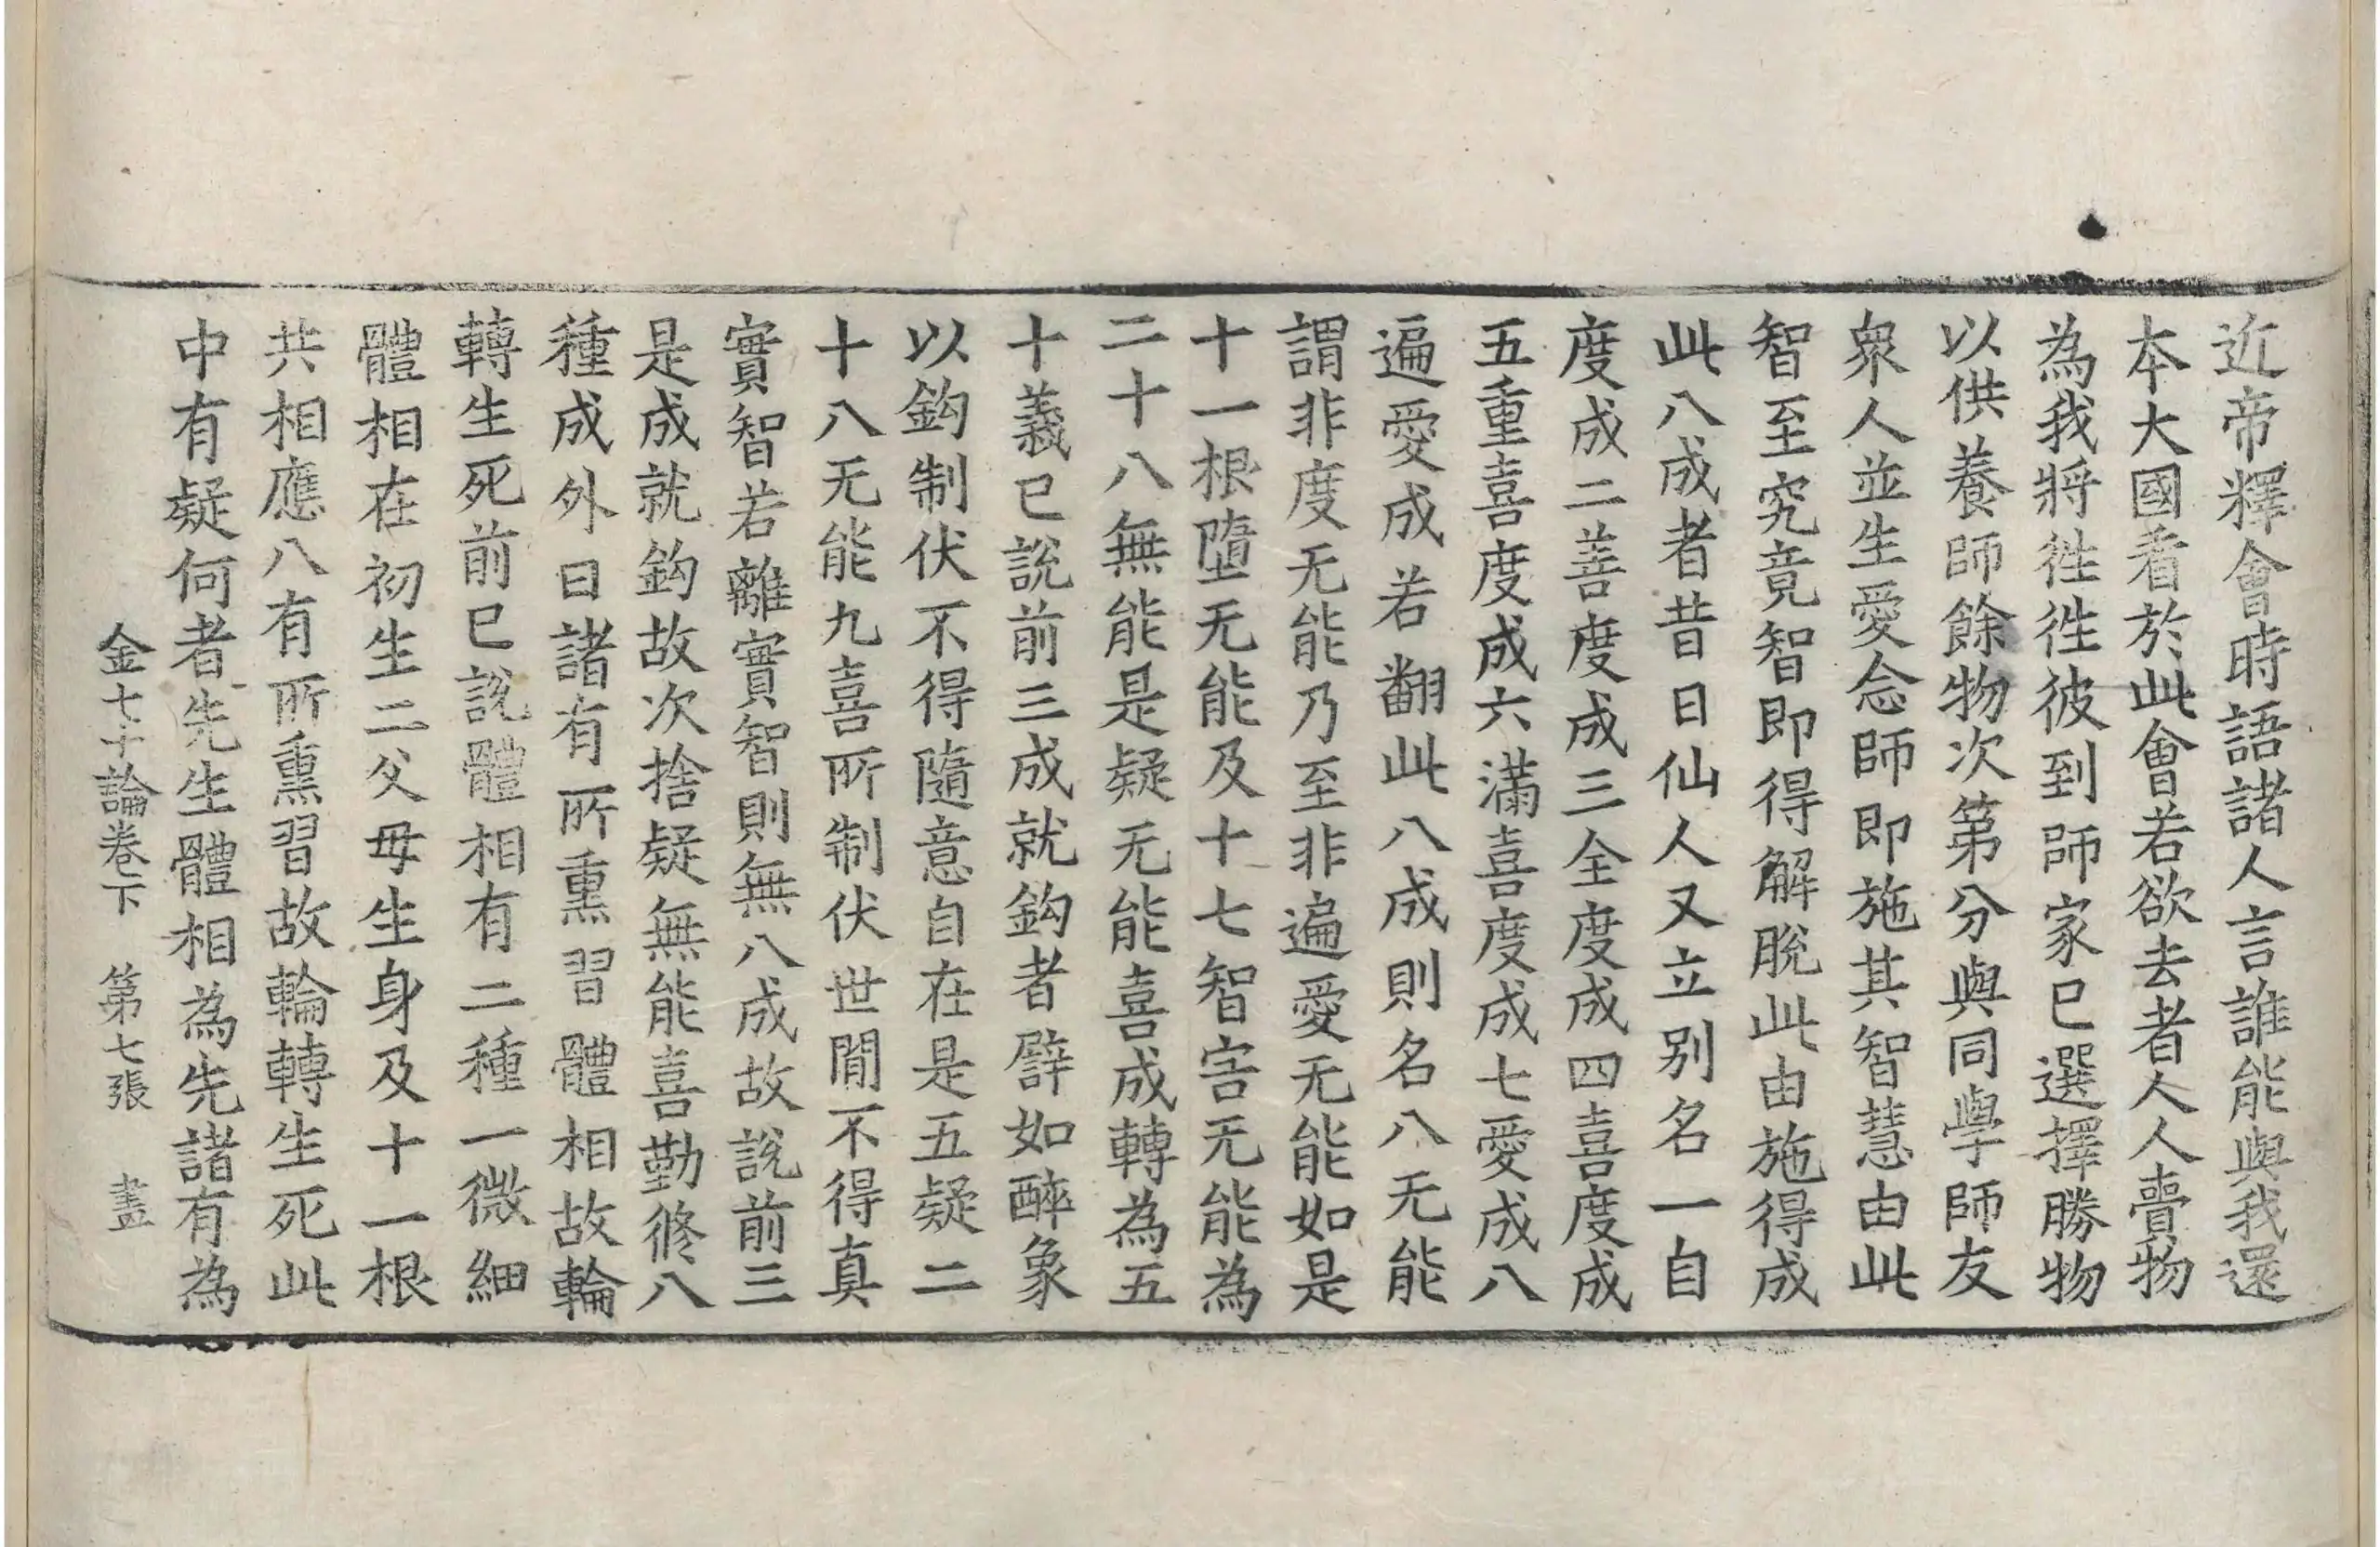 近帝釋會時語諸人言誰能與我還
本大國看於此會若欲去者人人賷物
為我將徃徃彼到師家已選擇勝物
以供養師餘物次第分與同學師友
衆人並生愛念師即施其智慧由此
智至究竟智即得解脫此由施得成
此八成者昔日仙人又立別名一自
度成二善度成三全度成四喜度成
五重喜度成六滿喜度成七愛成八
遍愛成若翻此八成則名八无能
謂非度无能乃至非遍愛无能如是
十一根墮无能及十七智害无能為
二十八無能是疑无能喜成轉為五
十義已說前三成就鈎者譬如醉象
以鈎制伏不得隨意自在是五疑二
十八无能九喜所制伏世間不得真
實智若離實智則無八成故說前三
是成就鈎故次捨疑無能喜勤修八
種成外曰諸有所熏習體相故輪
轉生死前已說體相有二種一微細
體相在初生二父母生身及十一根
共相應八有所熏習故輪轉生死此
中有疑何者先生體相為先諸有為
金七十論卷下 第七張 盡